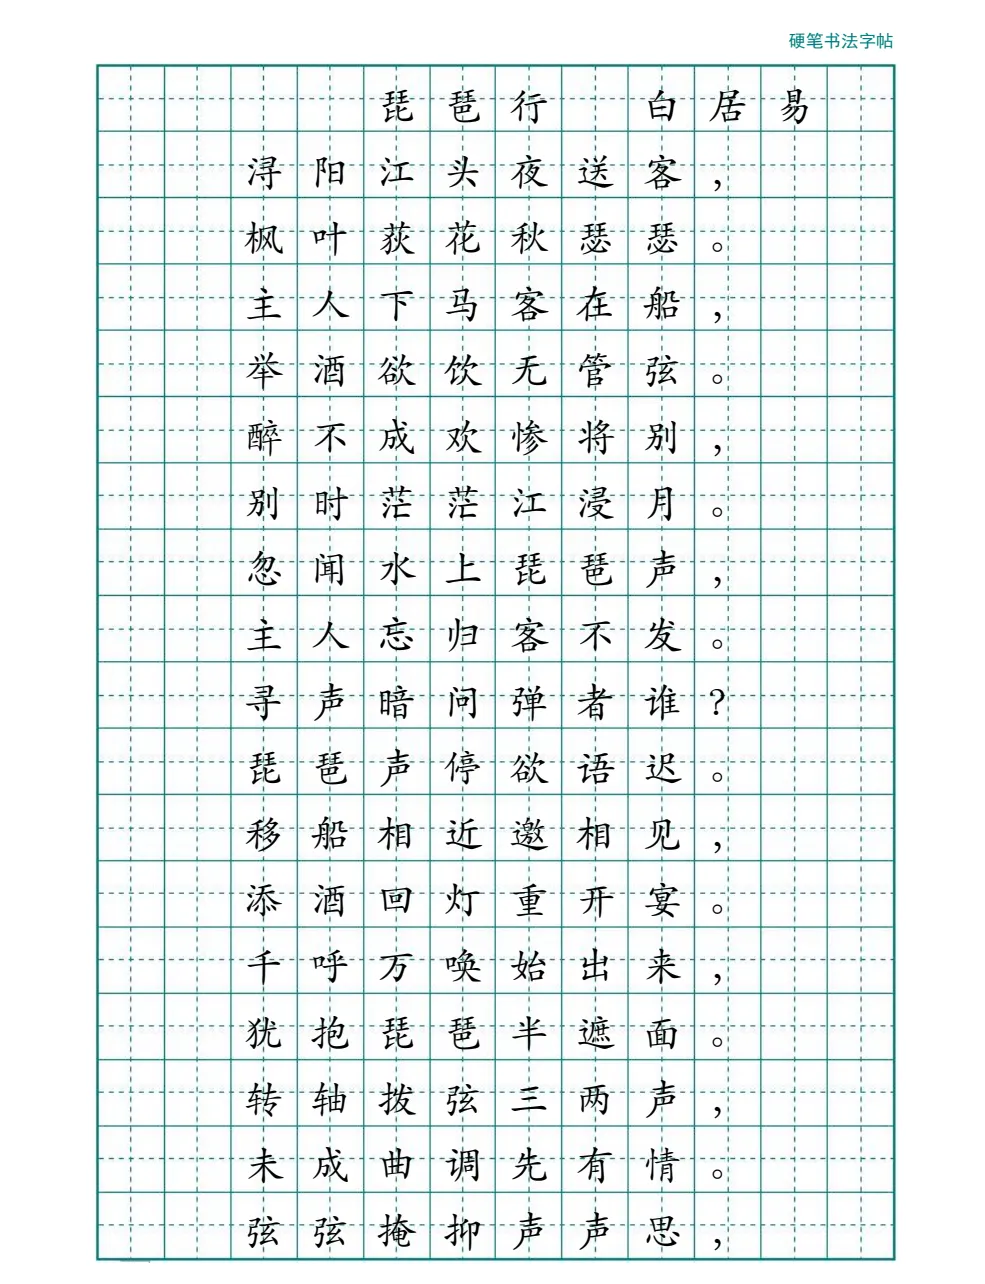 硬笔书法字帖
琵琶行 白居易
浔阳江头夜送客，
枫叶荻花秋瑟瑟。
主人下马客在船，
举酒欲饮无管弦。
醉不成欢惨将别，
别时茫茫江浸月。
忽闻水上琵琶声，
主人忘归客不发。
寻声暗问弹者谁？
琵琶声停欲语迟。
移船相近邀相见，
添酒回灯重开宴。
千呼万唤始出来，
犹抱琵琶半遮面。
转轴拨弦三两声，
未成曲调先有情。
弦弦掩抑声声思，